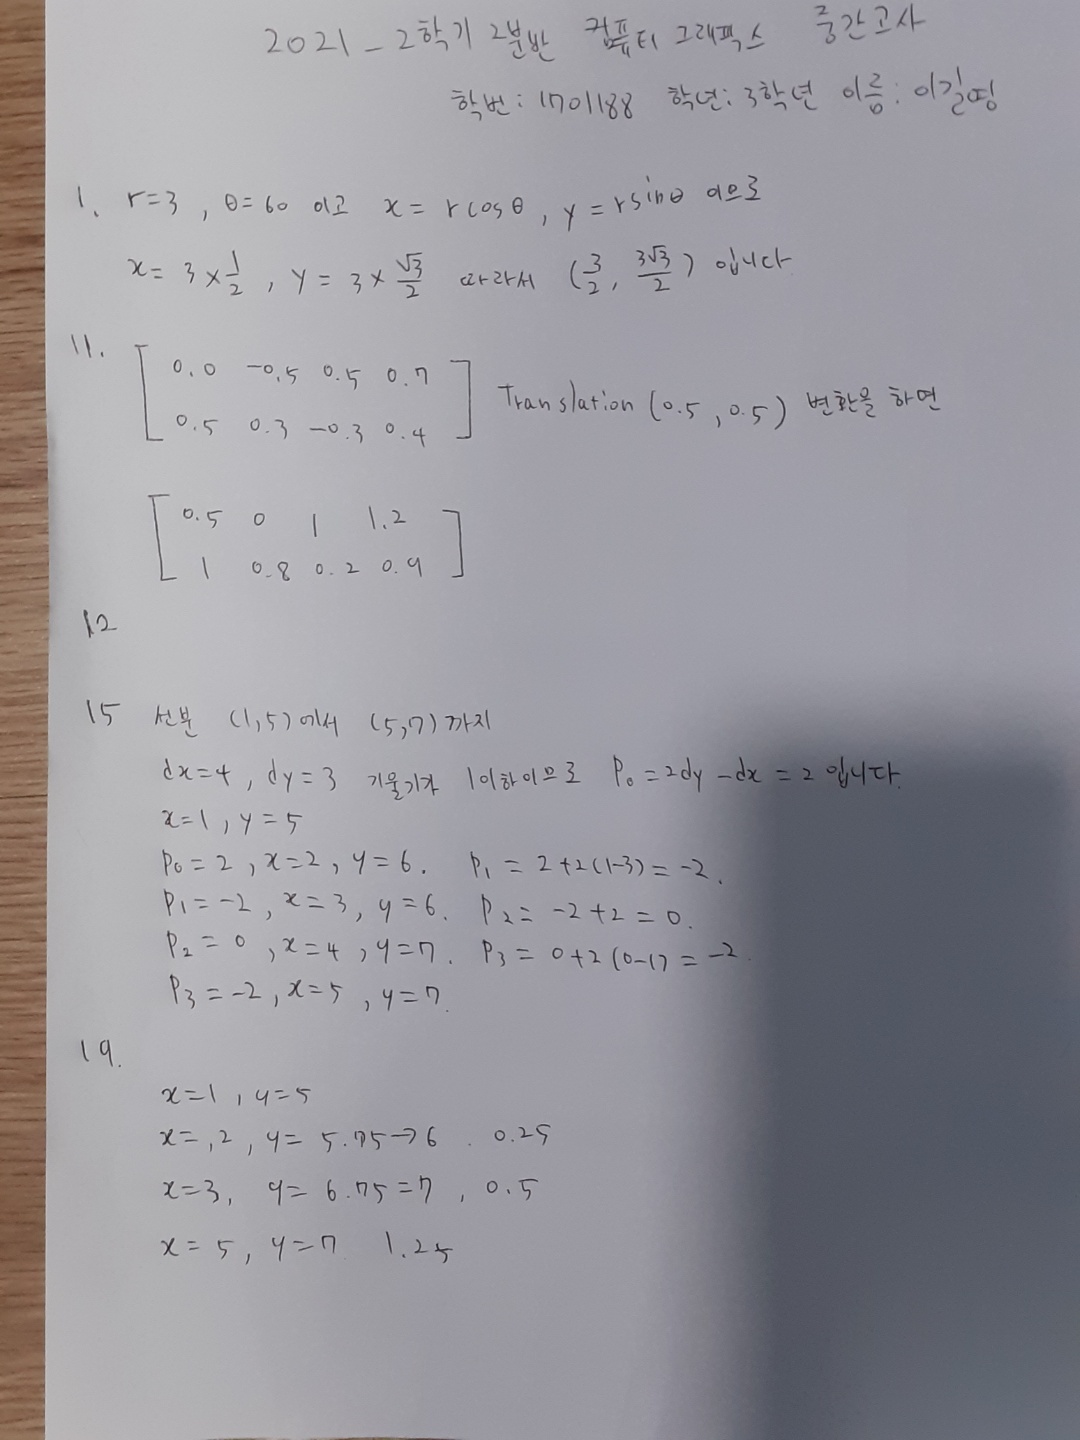 2021 - 2학기 2분반 컴퓨터그래픽스 중간고사
학번: 1701188 학년: 3학년 이름: 이길띵
1. r=3, θ=60 이고 x = r cosθ, y = r sinθ 이므로
x = 3 × 1/2, y = 3 × √3/2 따라서 (3/2, 3√3/2) 입니다
11. [ 0.0 -0.5 0.5 0.7
0.5 0.3 -0.3 0.4 ] Translation (0.5, 0.5) 변환을 하면
[ 0.5 0 1 1.2
1 0.8 0.2 0.9 ]
12
15 선분 (1,5)에서 (5,7)까지
dx=4, dy=3 기울기가 1이하이므로 P₀ = 2dy - dx = 2 입니다.
x=1, y=5
P₀ = 2, x=2, y=6. P₁ = 2+2(1-3) = -2.
P₁ = -2, x=3, y=6. P₂ = -2+2 = 0.
P₂ = 0, x=4, y=7. P₃ = 0+2(0-1) = -2.
P₃ = -2, x=5, y=7.
19.
x=1, y=5
x=,2, y= 5.75→6. 0.25
x=3, y= 6.75=7, 0.5
x=5, y=7. 1.25